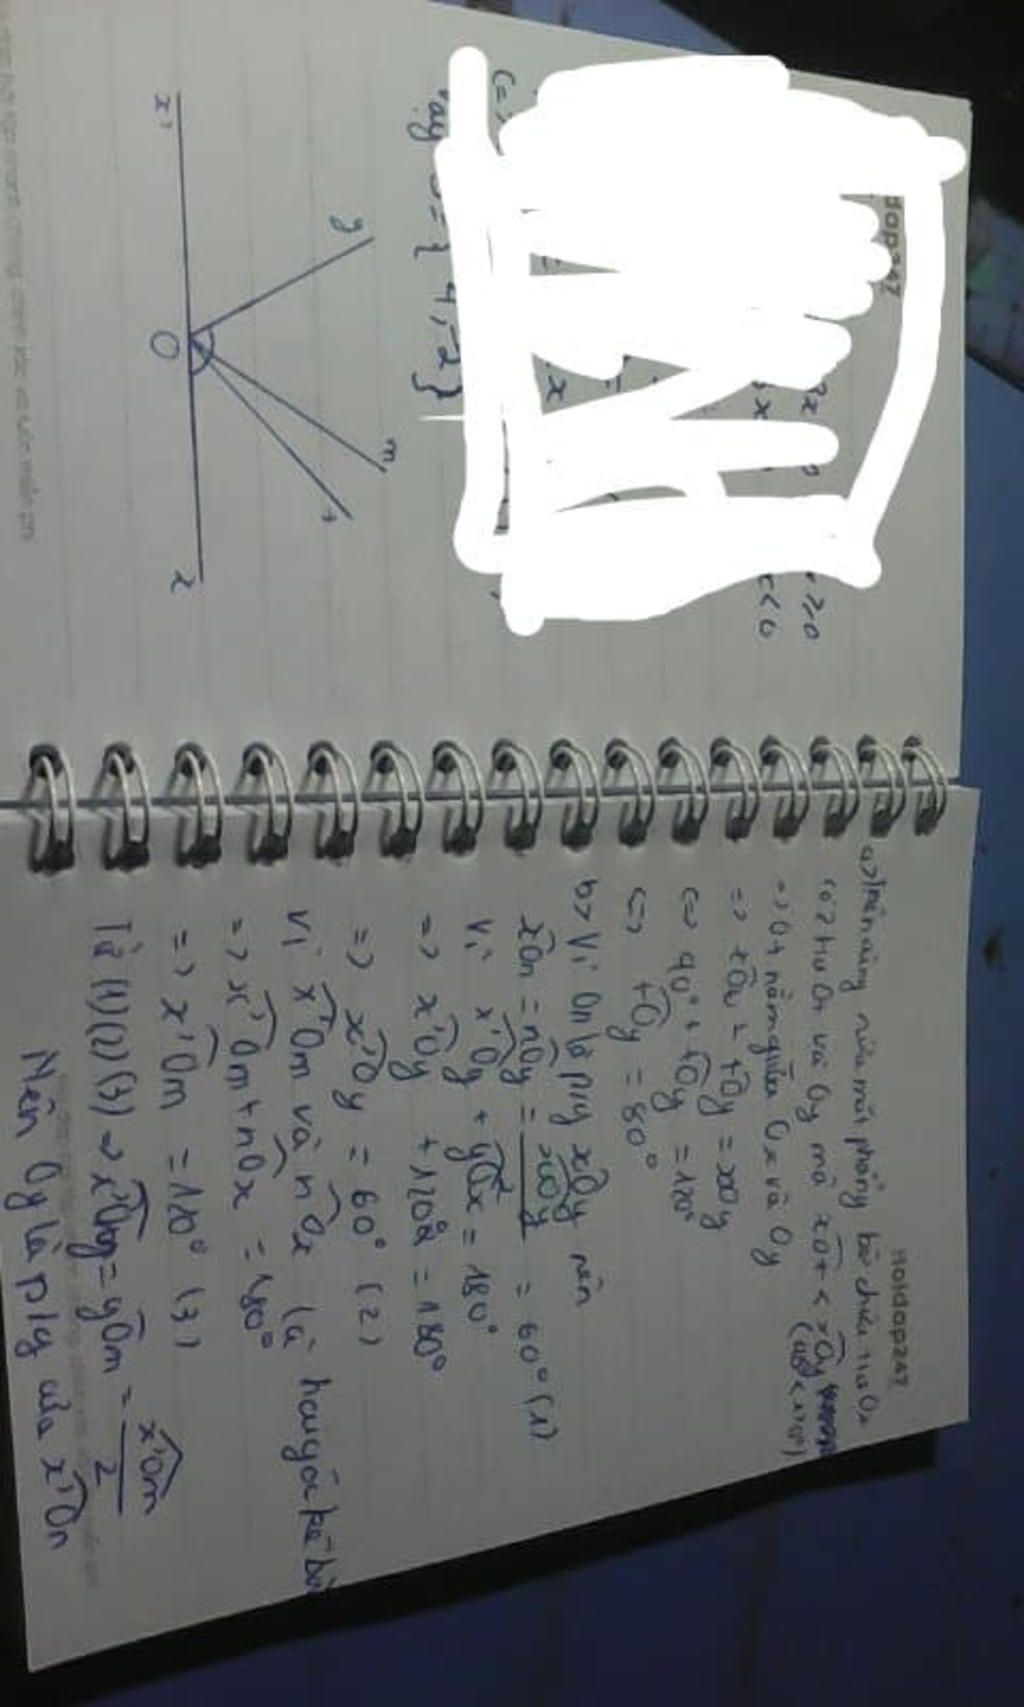 dap247
3x
≥0
3x
x<0
= x
(=>
Vậy S={ 4,2}
y
m
t
x'
O
x
Hoidap247
a>Trên cùng nửa mặt phẳng bờ chứa tia Ox
có 2 tia Ot và Oy mà xOt < xOy
=> Ot nằm giữa Ox và Oy
=> tOx + tOy = xOy
<=> 40° + tOy = 120°
<=> tOy = 80°
b> Vì On là p/g xOy nên
xOn = nOy = xOy/2 = 60° (1)
Vì x'Oy + yOx = 180°
=> x'Oy + 120° = 180°
=> x'Oy = 60° (2)
Vì x'Om và nOx là hai góc kề bù
=> x'Om + nOx = 180°
=> x'On = 120° (3)
Từ (1)(2)(3) => x'Oy = yOm = x'Om/2
Nên Oy là p/g của x'On